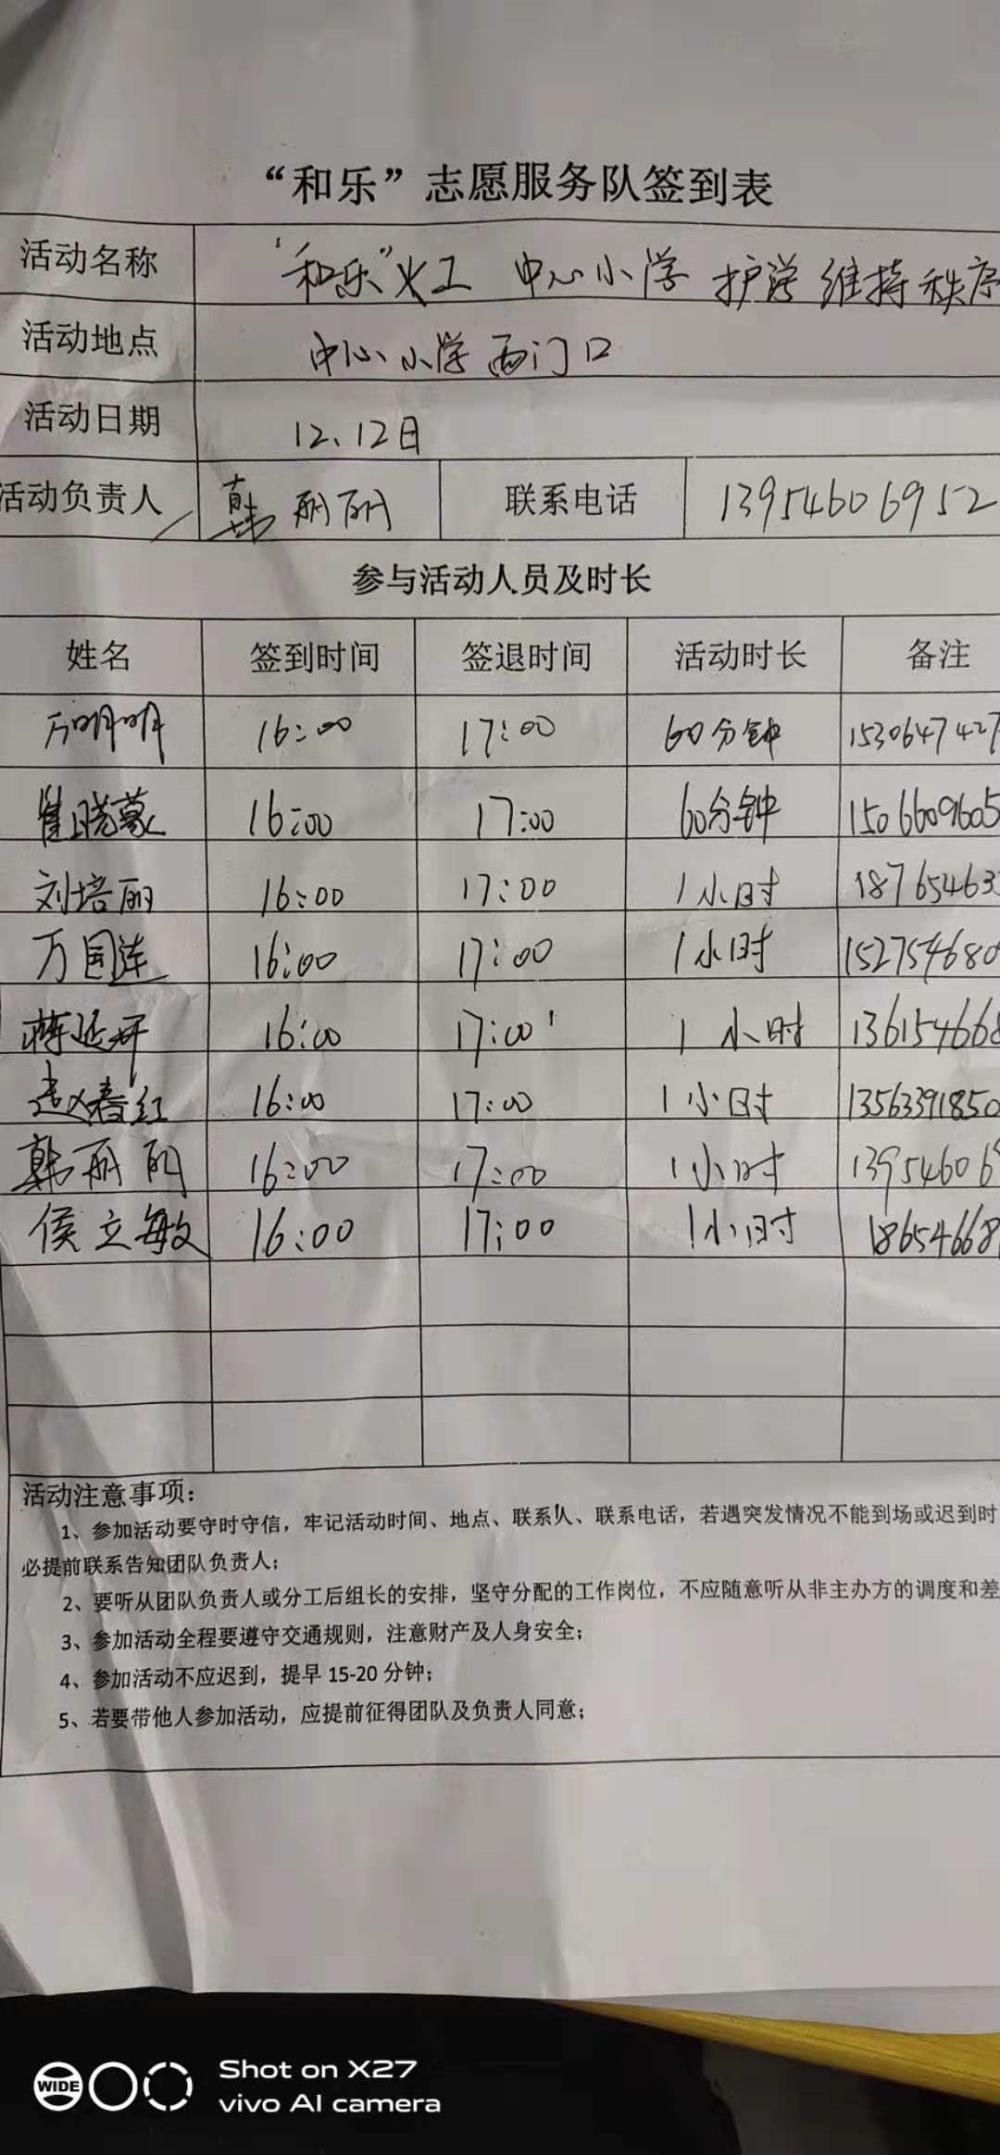 “和乐”志愿服务队签到表
活动名称 “和乐”义工 中心小学 护学 维持秩序
活动地点 中心小学西门口
活动日期 12、12日
活动负责人 韩丽丽 联系电话 13954606952
参与活动人员及时长
姓名 签到时间 签退时间 活动时长 备注
万明明 16:00 17:00 60分钟 1530647427
崔晓蒙 16:00 17:00 60分钟 1506609605
刘培丽 16:00 17:00 1小时 18765463
万国连 16:00 17:00 1小时 152754680
蒋延开 16:00 17:00 1小时 136154668
赵春红 16:00 17:00 1小时 1356391850
韩丽丽 16:00 17:00 1小时 13954606
侯立敏 16:00 17:00 1小时 18654668
活动注意事项：
1、参加活动要守时守信，牢记活动时间、地点、联系人、联系电话，若遇突发情况不能到场或迟到时
必提前联系告知团队负责人；
2、要听从团队负责人或分工后组长的安排，坚守分配的工作岗位，不应随意听从非主办方的调度和差
3、参加活动全程要遵守交通规则，注意财产及人身安全；
4、参加活动不应迟到，提早 15-20 分钟；
5、若要带他人参加活动，应提前征得团队及负责人同意；
WIDE
Shot on X27
vivo AI camera